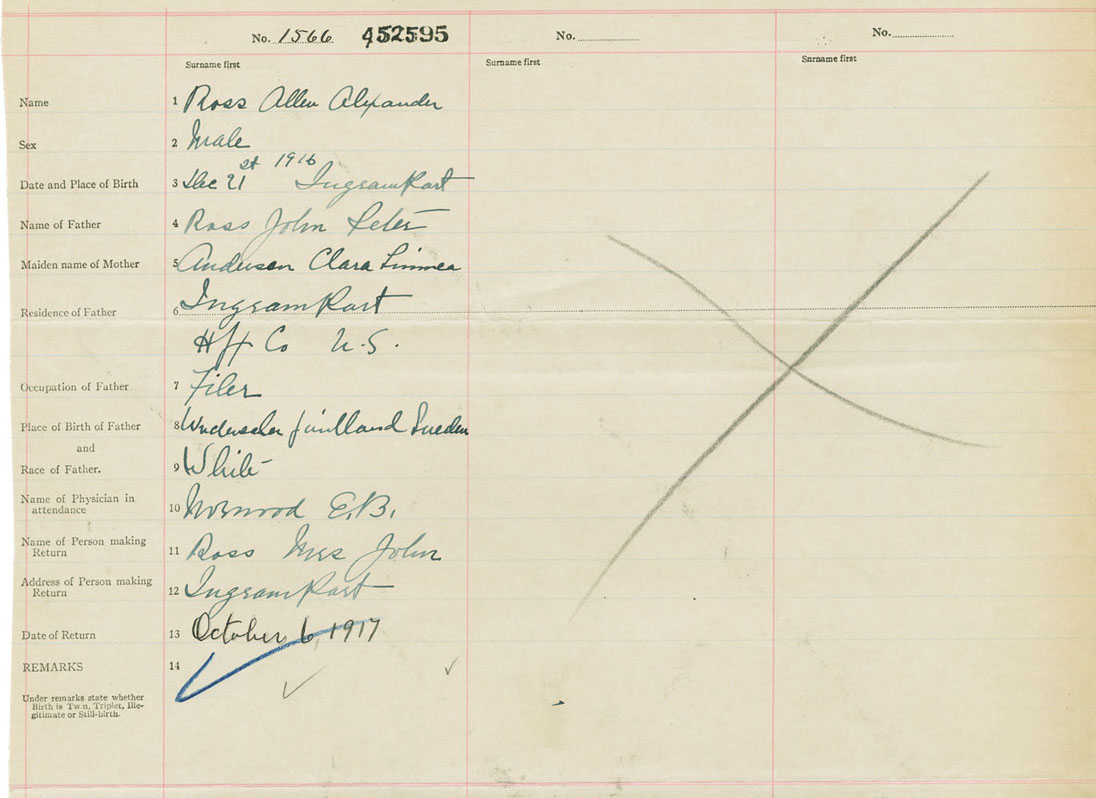 No. 1566 452595 No. No.
Surname first Surname first Surname first
Name 1 Ross Allen Alexander
Sex 2 Male
Date and Place of Birth 3 Dec 21st 1916 Ingram Port
Name of Father 4 Ross John Peter
Maiden name of Mother 5 Anderson Clara Linnea
Residence of Father 6 Ingram Port
Hfx Co N.S.
Occupation of Father 7 Filer
Place of Birth of Father 8 Sweden
and
Race of Father. 9 White
Name of Physician in
attendance 10 Norwood E.B.
Name of Person making
Return 11 Ross Mrs John
Address of Person making
Return 12 Ingram Port
Date of Return 13 October 6, 1917
REMARKS 14
Under remarks state whether
Birth is Twin, Triplet, Ille-
gitimate or Still-birth.